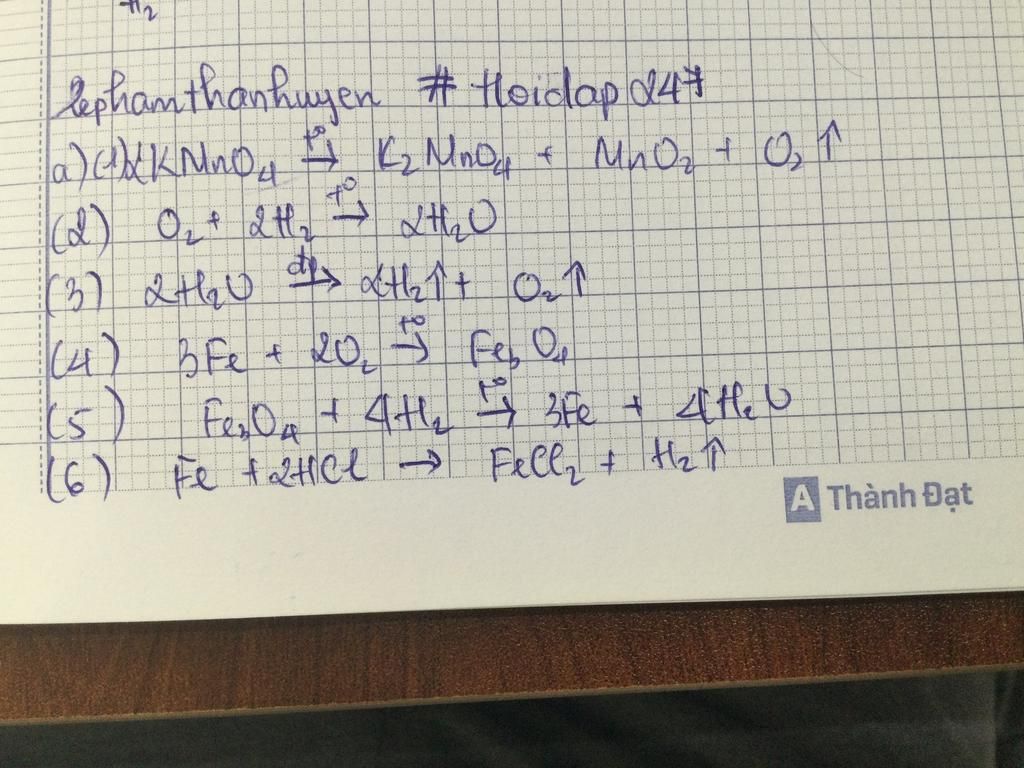 H₂
lephamthanhuyen # Hoidap247
a) (1) 2KMnO₄ t°→ K₂MnO₄ + MnO₂ + O₂↑
(2) O₂ + 2H₂ t°→ 2H₂O
(3) 2H₂O đp→ 2H₂↑ + O₂↑
(4) 3Fe + 2O₂ t°→ Fe₃O₄
(5) Fe₃O₄ + 4H₂ t°→ 3Fe + 4H₂O
(6) Fe + 2HCl → FeCl₂ + H₂↑
A Thành Đạt